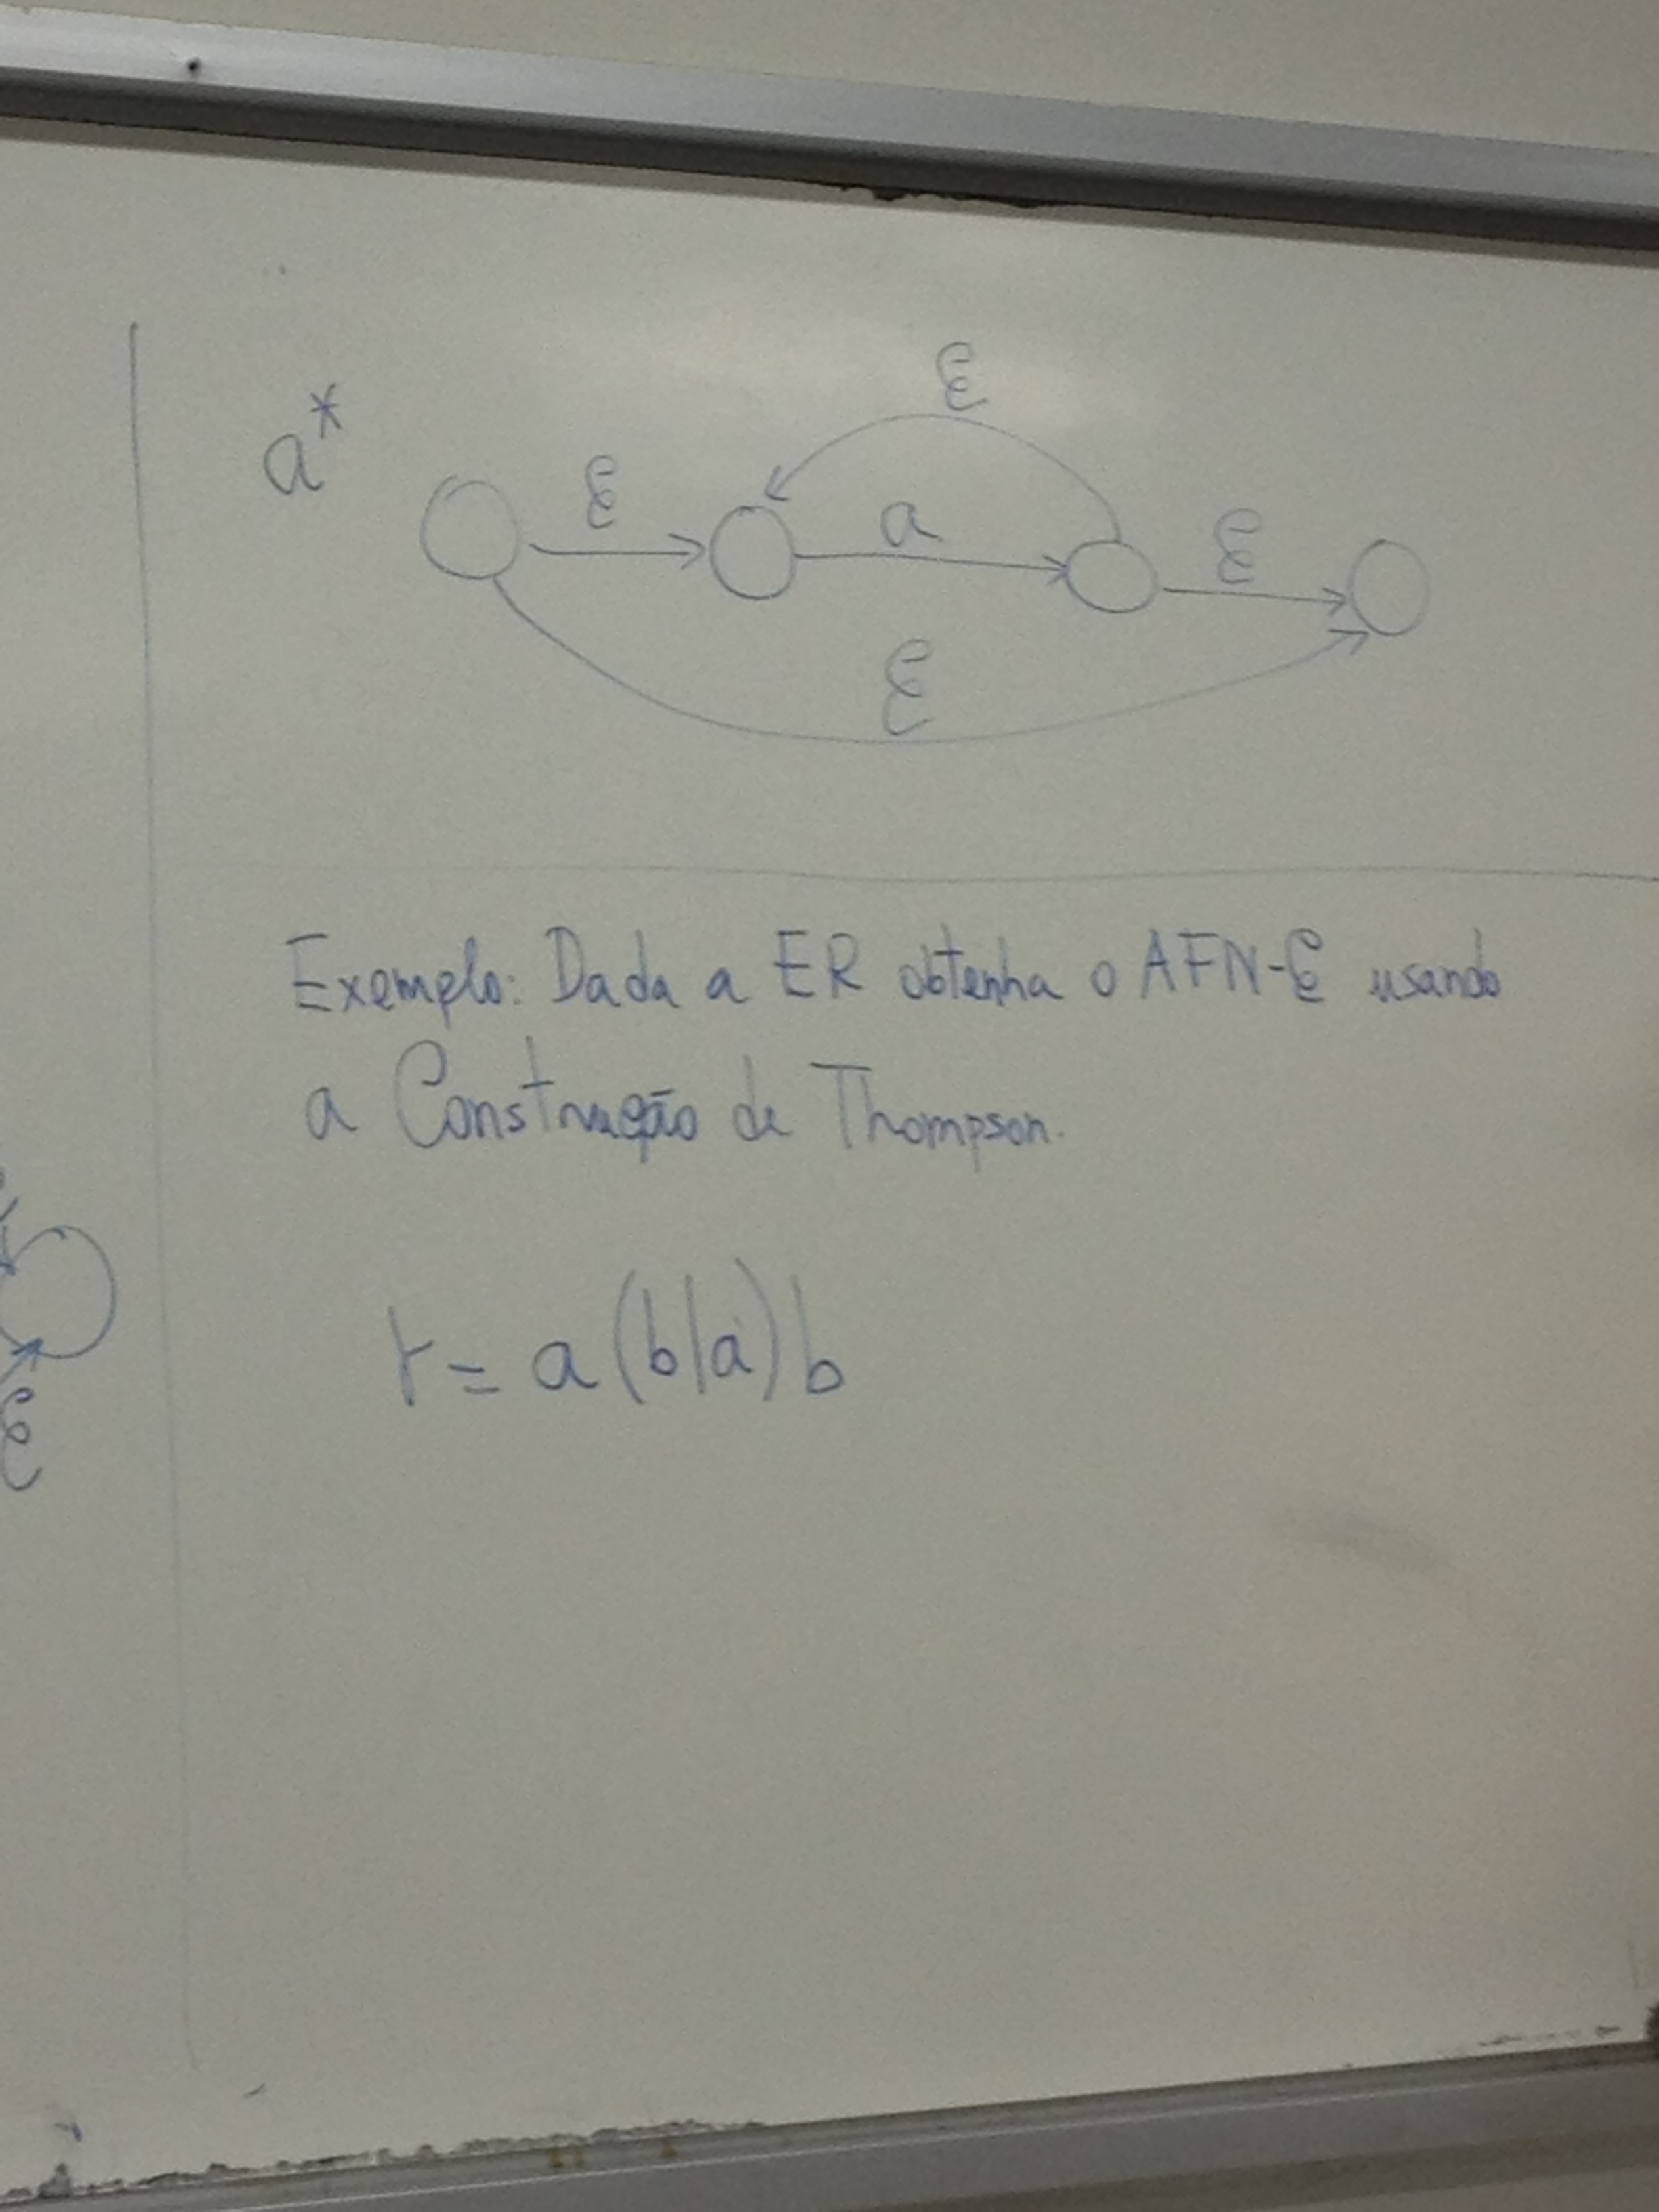 a*
ε
ε
a
ε
ε
Exemplo: Dada a ER obtenha o AFN-ε usando
a Construção de Thompson.
r = a(b|a)b
ε